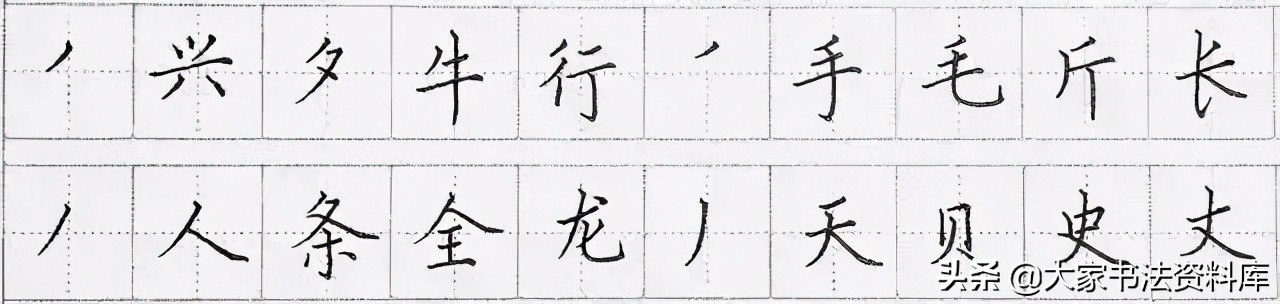 丿 兴 夕 牛 行 丿 手 毛 斤 长
丿 人 条 全 龙 丿 天 贝 史 丈
头条 @大家书法资料库